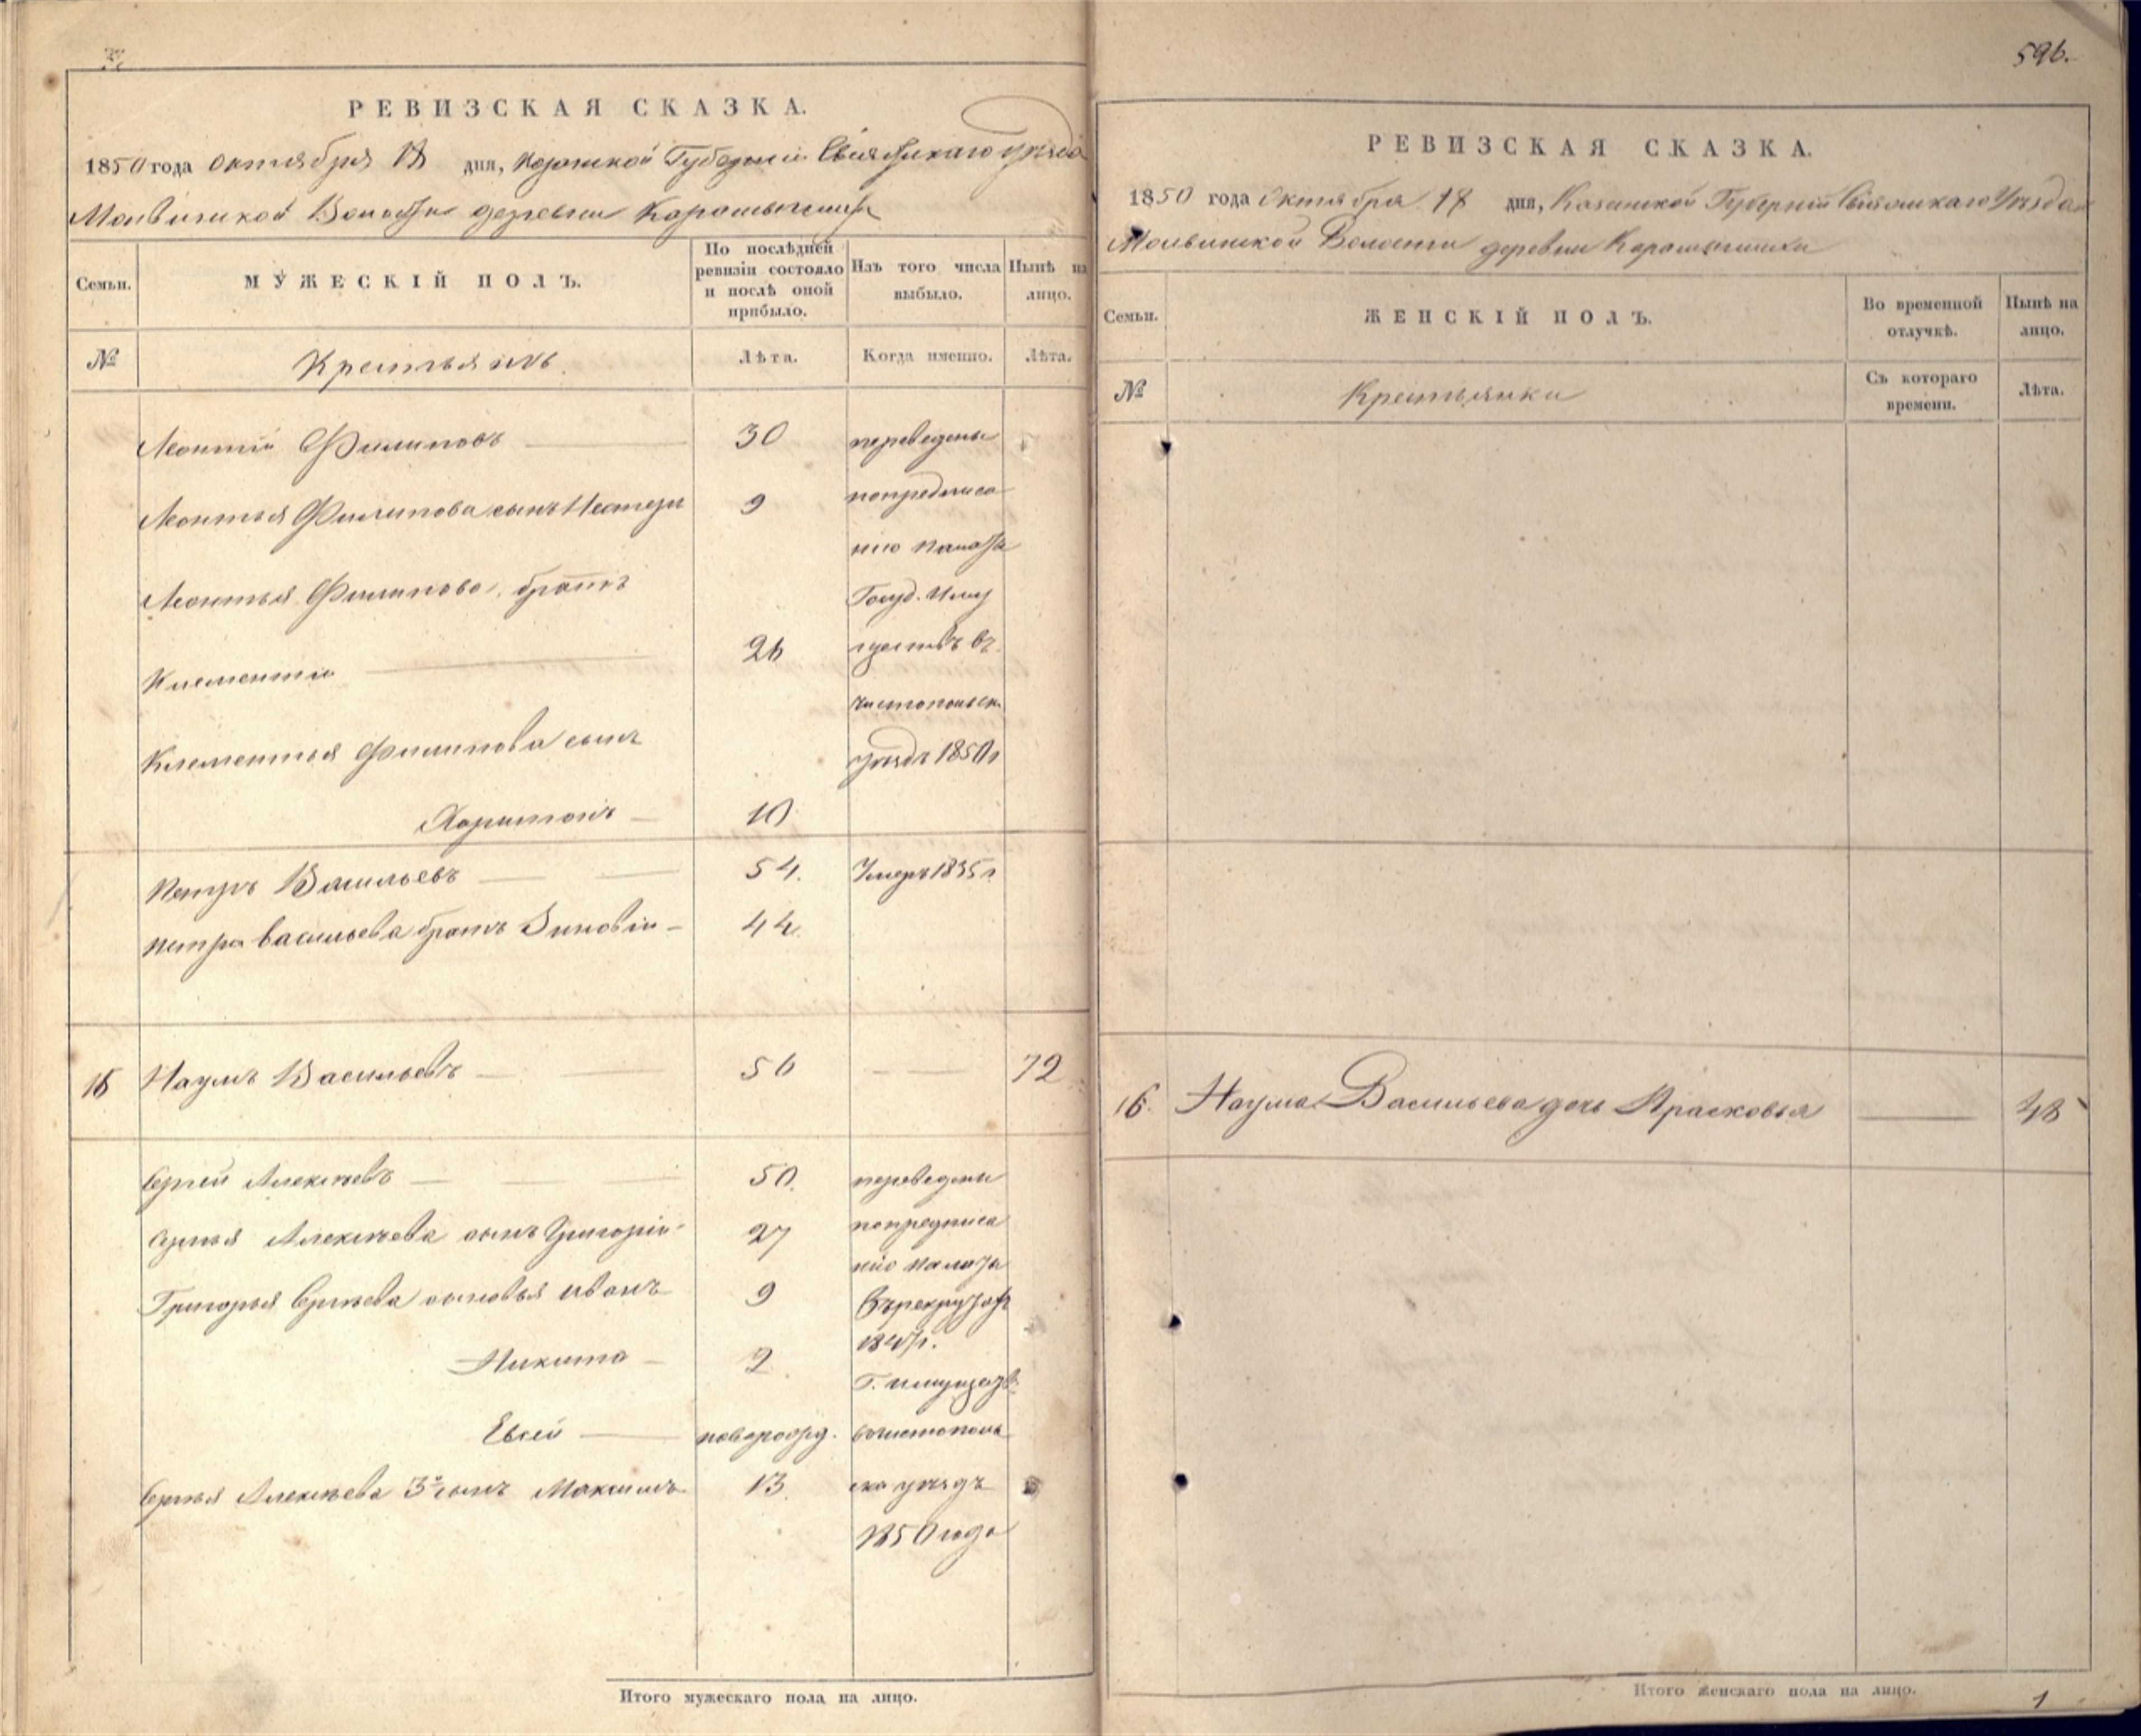 РЕВИЗСКАЯ СКАЗКА.
1850 года октября 18 дня, Казанской Губернии Свіяжскаго уѣзда
Моивинской Волости деревни Карамышихи
Семьи.
МУЖЕСКІЙ ПОЛЪ.
По послѣдней ревизіи состояло и послѣ оной прибыло.
Изъ того числа выбыло.
Нынѣ на лицо.
№
Крестьянъ.
Лѣта.
Когда именно.
Лѣта.
Леонтій Филиповъ 30 переведены
Леонтья Филипова сынъ Нестеръ 9 попредписа
нію палаты
Леонтья Филипова братъ Госуд. Иму
Клементій 26 ществъ въ
чистопольск.
Клементья Филипова сынъ уѣздъ 1850 г
Харитонъ 10
Петръ Васильевъ 54. Умеръ 1835 г.
Петра васильева братъ Зиновій 44.
16 Наумъ Васильевъ 56 72
Сергей Алексѣевъ 50. переведены
Сергья Алексѣева сынъ Григорій 27 попредписа
нію палаты
Григорья Сергѣева сыновья иванъ 9 Въ рекруты
Никита 2 Г. имуществъ
Евсей новорожд. вчистополь
Сергья Алексѣева 3й сынъ Максимъ 13. ска уѣздъ
1850 года
Итого мужескаго пола на лицо.
596.
РЕВИЗСКАЯ СКАЗКА.
1850 года Октября 18 дня, Казанской Губерніи Свіяжскаго Уѣзда
Моивинской Волости деревни Карамышихи
Семьи.
ЖЕНСКІЙ ПОЛЪ.
Во временной отлучкѣ.
Нынѣ на лицо.
№
Крестьянки
Съ котораго времени.
Лѣта.
16. Наума Васильева дочь Прасковья 48
Итого женскаго пола на лицо. 1